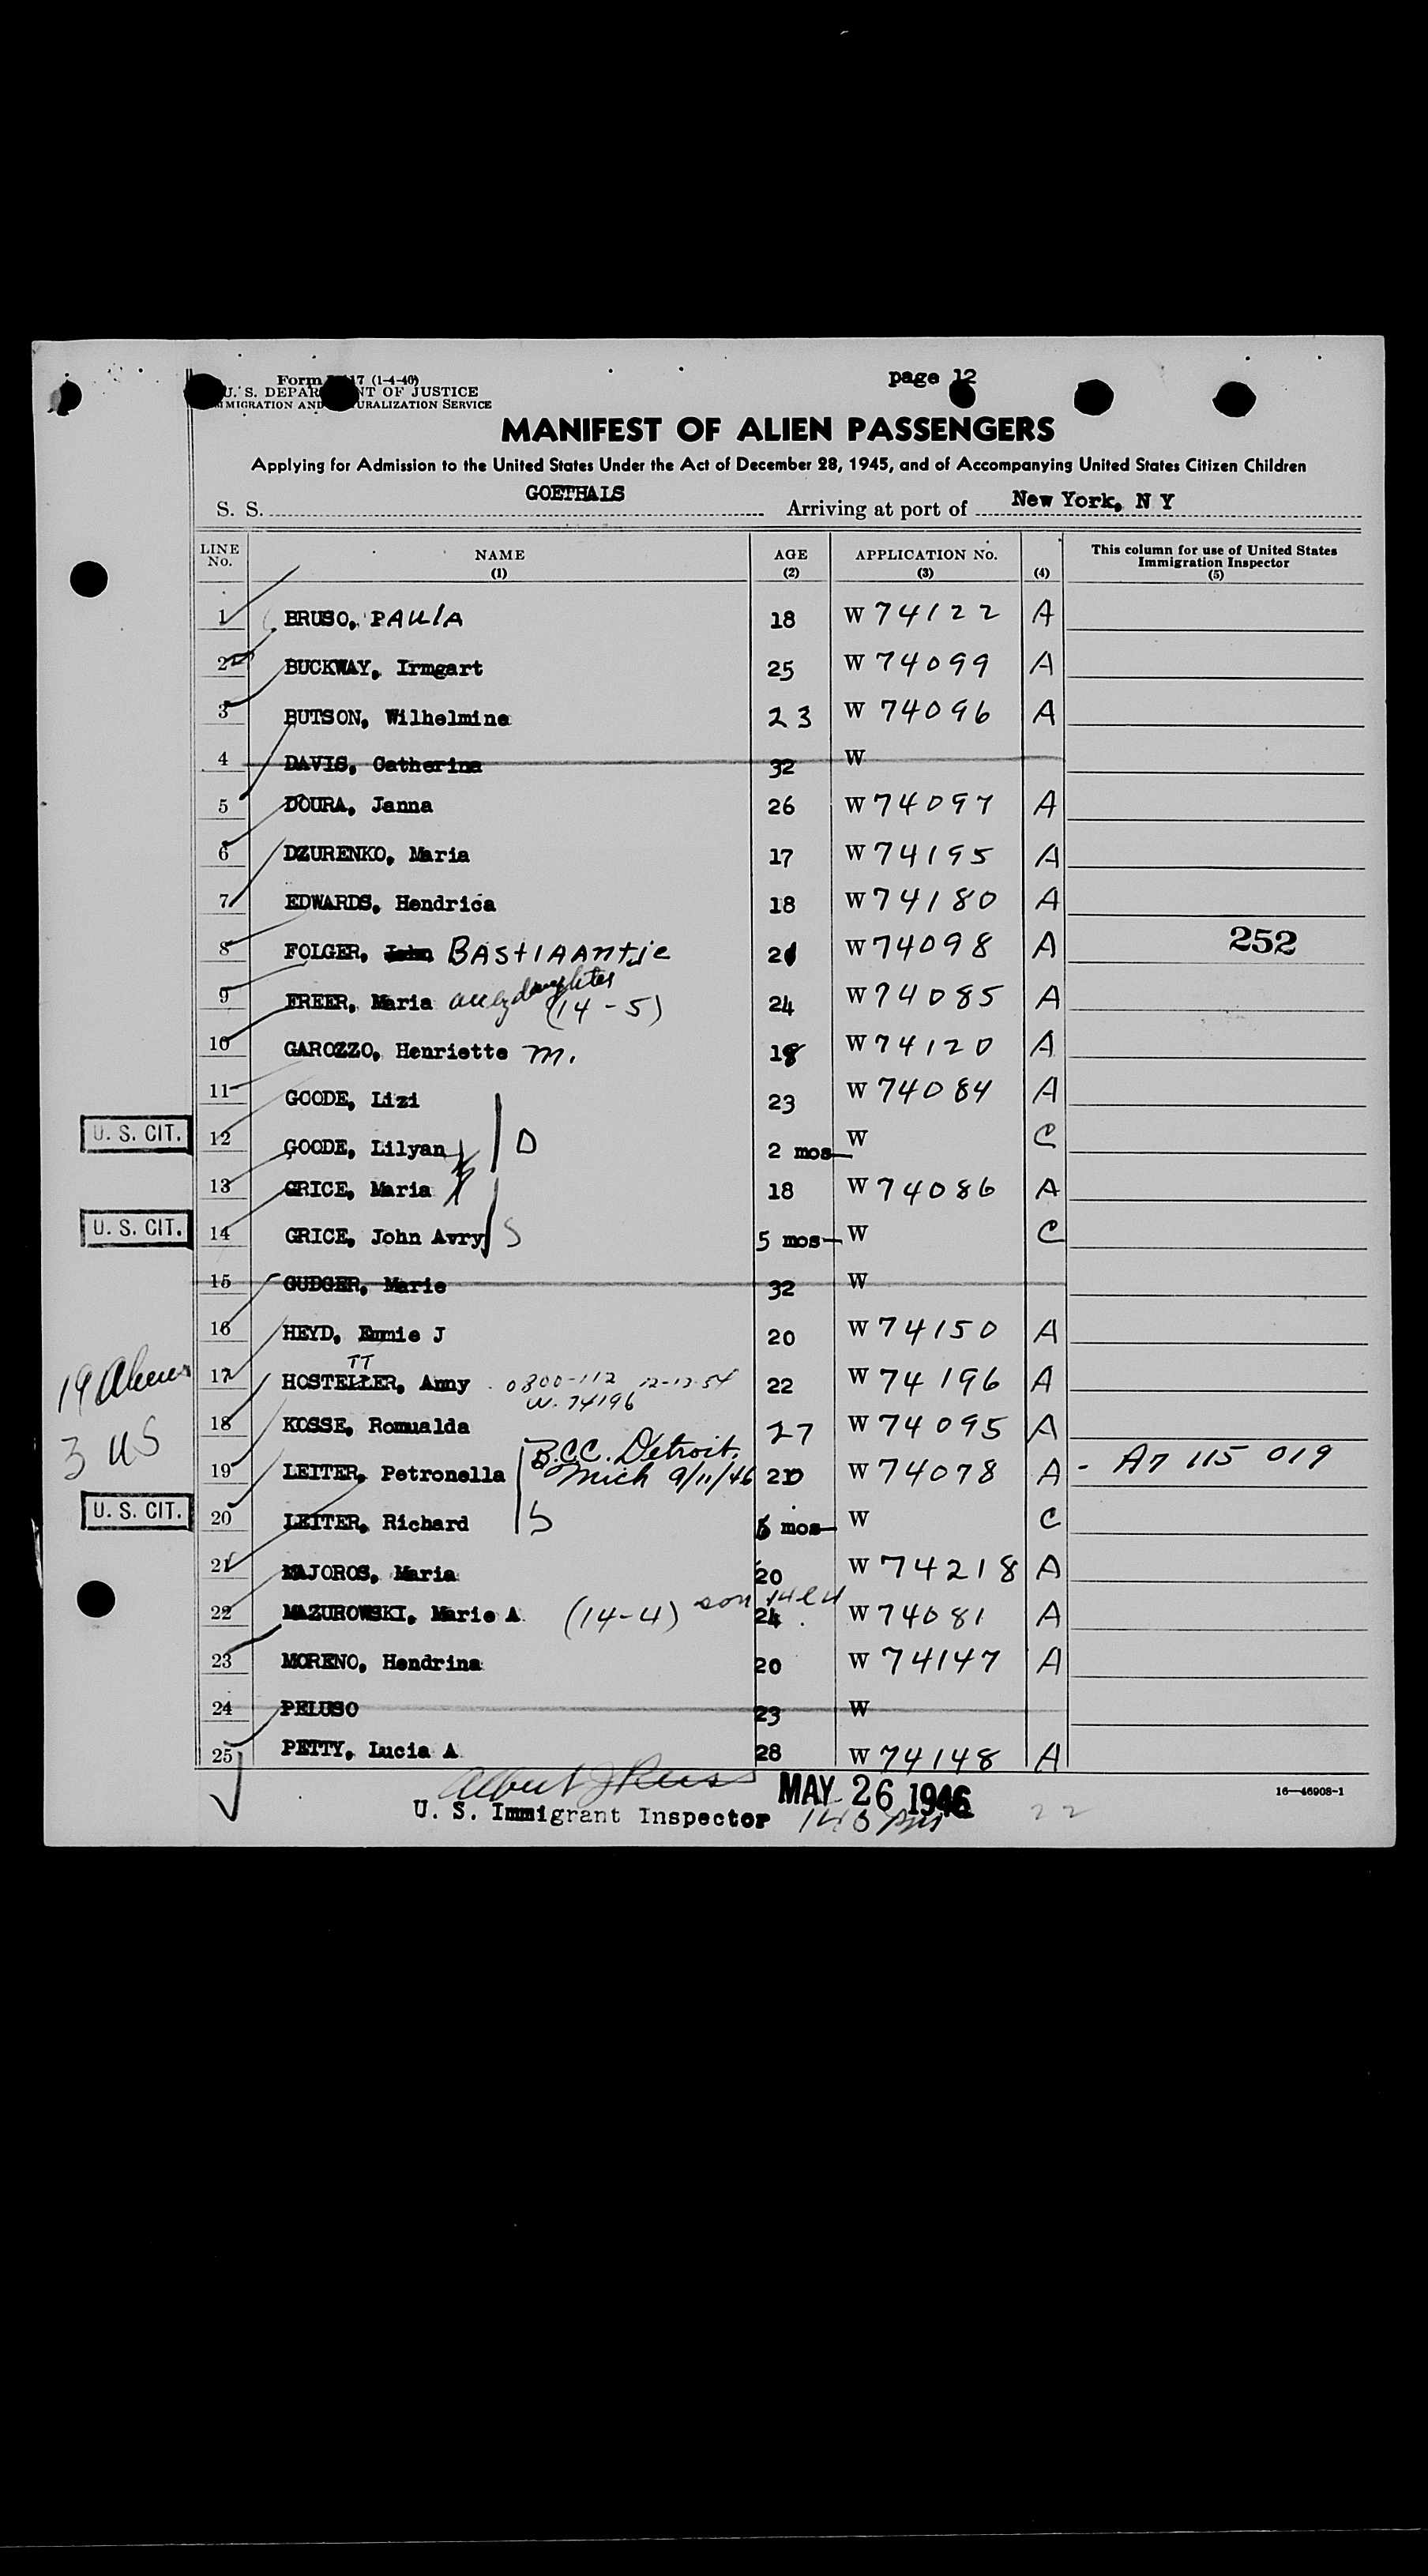 Form 17 (1-4-46)
page 12
U. S. DEPAR NT OF JUSTICE
MMIGRATION AND URALIZATION SERVICE
MANIFEST OF ALIEN PASSENGERS
Applying for Admission to the United States Under the Act of December 28, 1945, and of Accompanying United States Citizen Children
S. S. GOETHALS Arriving at port of New York, N Y
LINE No. NAME (1) AGE (2) APPLICATION No. (3) (4) This column for use of United States Immigration Inspector (5)
1 BRUSO, PAULA 18 W 74122 A
2 BUCKWAY, Irmgart 25 W 74099 A
3 BUTSON, Wilhelmine 23 W 74096 A
4 DAVIS, Catherina 32 W
5 DOURA, Janna 26 W 74097 A
6 DZURENKO, Maria 17 W 74195 A
7 EDWARDS, Hendrica 18 W 74180 A
8 FOLGER, John BAStIAAntje 21 W 74098 A 252
9 FREER, Maria daughter (14-5) 24 W 74085 A
10 GAROZZO, Henriette M. 18 W 74120 A
11 GOODE, Lizi 23 W 74084 A
U. S. CIT. 12 GOODE, Lilyan D 2 mos W C
13 GRICE, Maria 18 W 74086 A
U. S. CIT. 14 GRICE, John Avry S 5 mos W C
15 GUDGER, Marie 32 W
16 HEYD, Emmie J 20 W 74150 A
19 Aliens
TT
17 HOSTELLER, Anny 0300-112 12-13-54 22 W 74196 A
W. 74196
3 US
18 KOSSE, Romualda 27 W 74095 A
19 LEITER, Petronella B.C.C. Detroit, Mich 9/11/46 20 W 74078 A - A7 115 019
U. S. CIT. 20 LEITER, Richard S 6 mos W C
21 MAJOROS, Maria 20 W 74218 A
22 MAZUROWSKI, Marie A (14-4) son 24 W 74081 A
23 MORENO, Hendrina 20 W 74147 A
24 PELUSO 23 W
25 PETTY, Lucia A 28 W 74148 A
Albert J Reiss
MAY 26 1946
16—46908-1
U. S. Immigrant Inspector
22